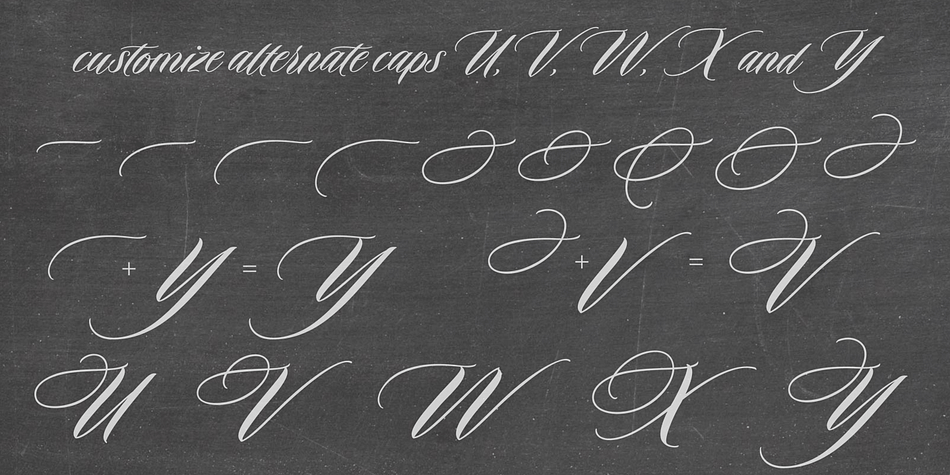 customize alternate caps U, V, W, X and Y
+ Y = Y + V = V
U V W X Y